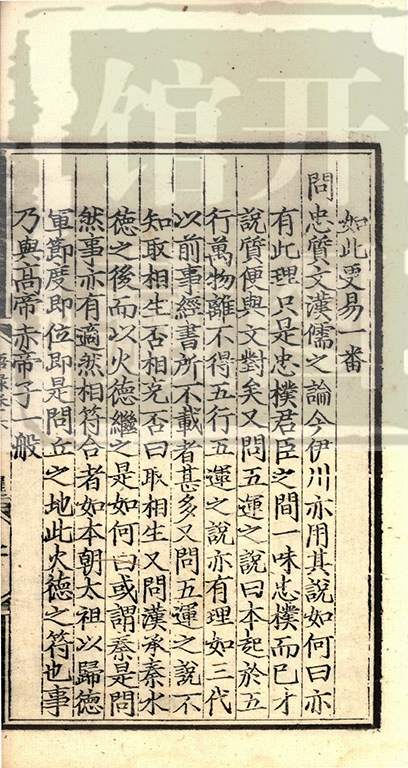 如此更易一番
問忠質文漢儒之論今伊川亦用其說如何曰亦
有此理只是忠樸君臣之間一味忠樸而已才
說質便與文對矣又問五運之說曰本起於五
行萬物離不得五行五運之說亦有理如三代
以前事經書所不載者甚多又問五運之說不
知取相生否相克否曰取相生又問漢承秦水
德之後而以火德繼之是如何曰或謂秦是閏
然事亦有適然相符合者如本朝太祖以歸德
軍節度即位即是商丘之地此火德之符也事
乃與高帝赤帝子一般
馆开